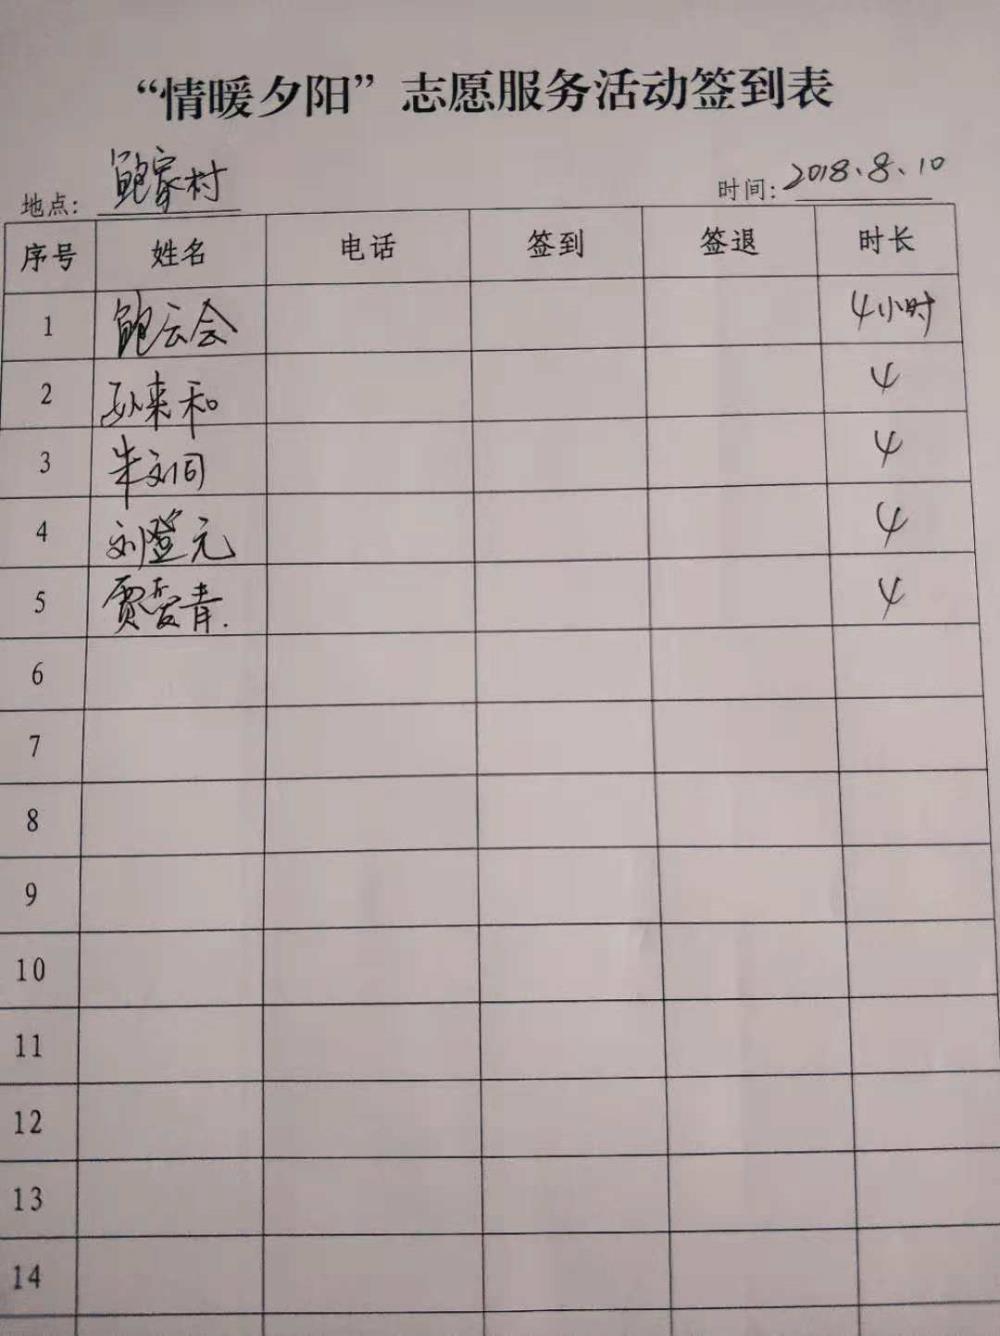 “情暖夕阳”志愿服务活动签到表
地点: 鲍家村 时间: 2018.8.10
序号 姓名 电话 签到 签退 时长
1 鲍云会 4小时
2 孙来和 4
3 朱刘同 4
4 刘登元 4
5 贾爱青. 4
6
7
8
9
10
11
12
13
14